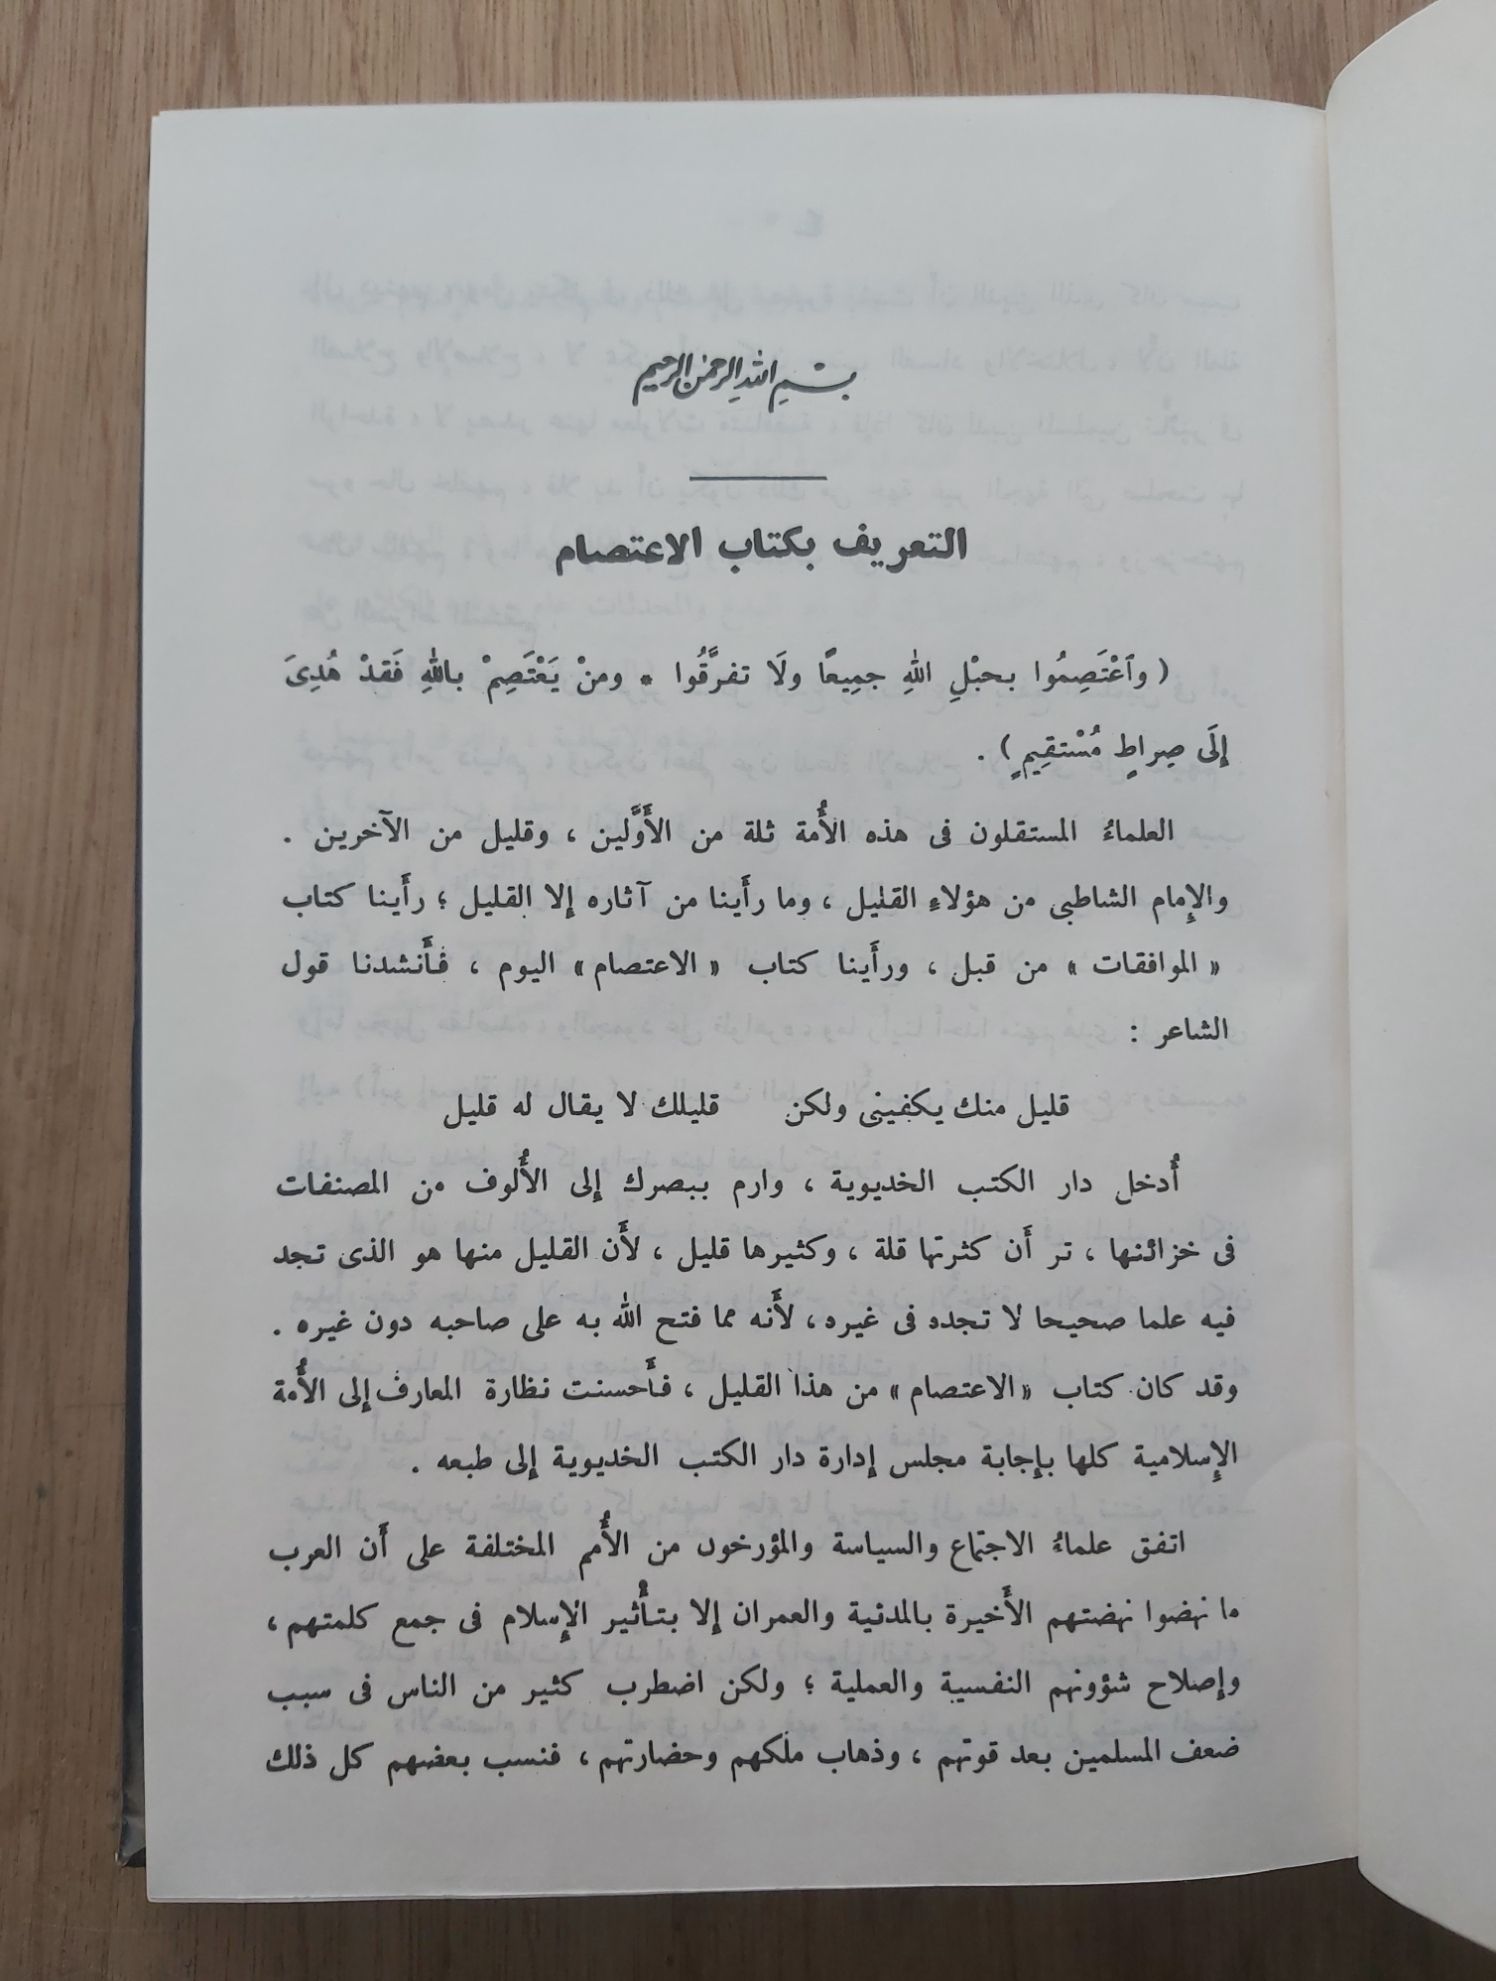 بسم الله الرحمن الرحيم
التعريف بكتاب الاعتصام
( وٱعْتَصِمُوا بحبْلِ اللهِ جمِيعًا ولَا تفرَّقُوا * ومنْ يَعْتَصِمْ باللهِ فَقدْ هُدِىَ
إلَى صِراطٍ مُسْتقِيمٍ ) .
العلماءُ المستقلون فى هذه الأُمة ثلة من الأَوَّلين ، وقليل من الآخرين .
والإمام الشاطبى من هؤلاءِ القليل ، وما رأَينا من آثاره إلا القليل ؛ رأَينا كتاب
« الموافقات » من قبل ، ورأَينا كتاب « الاعتصام » اليوم ، فأَنشدنا قول
الشاعر :
قليل منك يكفينى ولكن قليلك لا يقال له قليل
أُدخل دار الكتب الخديوية ، وارم ببصرك إلى الأُلوف من المصنفات
فى خزائنها ، تر أَن كثرتها قلة ، وكثيرها قليل ، لأَن القليل منها هو الذى تجد
فيه علما صحيحا لا تجده فى غيره ، لأَنه مما فتح الله به على صاحبه دون غيره .
وقد كان كتاب « الاعتصام » من هذا القليل ، فأَحسنت نظارة المعارف إلى الأُمة
الإسلامية كلها بإجابة مجلس إدارة دار الكتب الخديوية إلى طبعه .
اتفق علماءُ الاجتماع والسياسة والمؤرخون من الأُمم المختلفة على أَن العرب
ما نهضوا نهضتهم الأَخيرة بالمدنية والعمران إلا بتأْثير الإسلام فى جمع كلمتهم ،
وإصلاح شؤونهم النفسية والعملية ؛ ولكن اضطرب كثير من الناس فى سبب
ضعف المسلمين بعد قوتهم ، وذهاب ملكهم وحضارتهم ، فنسب بعضهم كل ذلك